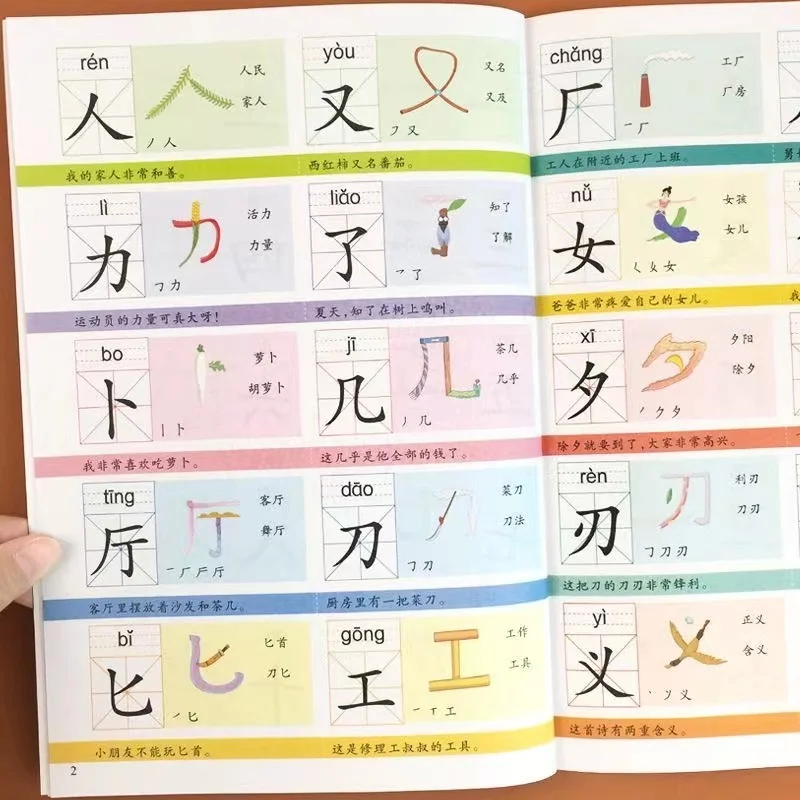 rén
人
人民
家人
丿 人
我的家人非常和善。
yòu
又
又名
又及
㇇ 又
西红柿又名番茄。
lì
力
活力
力量
㇆ 力
运动员的力量可真大呀!
liǎo
了
知了
了解
乛 了
夏天,知了在树上鸣叫。
bo
卜
萝卜
胡萝卜
丨 卜
我非常喜欢吃萝卜。
jī
几
茶几
几乎
丿 几
这几乎是他全部的钱了。
tīng
厅
客厅
舞厅
一 厂 厂 厅
客厅里摆放着沙发和茶几。
dāo
刀
菜刀
刀法
㇆ 刀
厨房里有一把菜刀。
bǐ
匕
匕首
刀匕
㇀ 匕
小朋友不能玩匕首。
gōng
工
工作
工具
一 丅 工
这是修理工叔叔的工具。
2
chǎng
厂
工厂
厂房
一 厂
工人在附近的工厂上班。
nǚ
女
女孩
女儿
㇛ 女 女
爸爸非常疼爱自己的女儿。
xī
夕
夕阳
除夕
丿 ク 夕
除夕就要到了,大家非常高兴。
rèn
刃
利刃
刀刃
㇆ 刀 刃
这把刀的刀刃非常锋利。
yì
义
正义
含义
丶 丿 义
这首诗有两重含义。